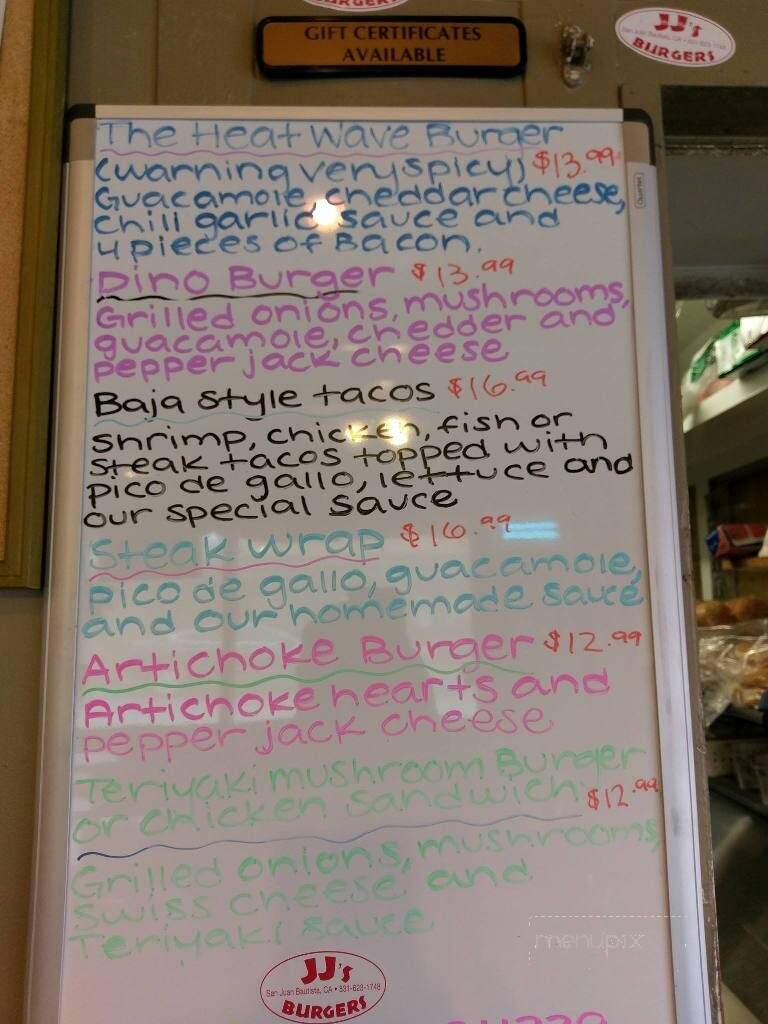 GIFT CERTIFICATES
AVAILABLE
BURGERS
JJ's
San Juan Bautista, CA • 831-623-1748
BURGERS
The Heat Wave Burger
(warning very spicy) $13.99
Guacamole, cheddar cheese,
chili garlic sauce and
4 pieces of Bacon.
Dino Burger $13.99
Grilled onions, mushrooms,
guacamole, chedder and
pepper jack cheese
Baja Style tacos $16.99
shrimp, chicken, fish or
steak tacos topped with
pico de gallo, lettuce and
our special sauce
Steak wrap $16.99
pico de gallo, guacamole,
and our homemade sauce
Artichoke Burger $12.99
Artichoke hearts and
pepper jack cheese
Teriyaki mushroom Burger
or chicken sandwich $12.99
Grilled onions, mushrooms,
Swiss cheese and
Teriyaki sauce
menupix
JJ's
San Juan Bautista, CA • 831-623-1748
BURGERS